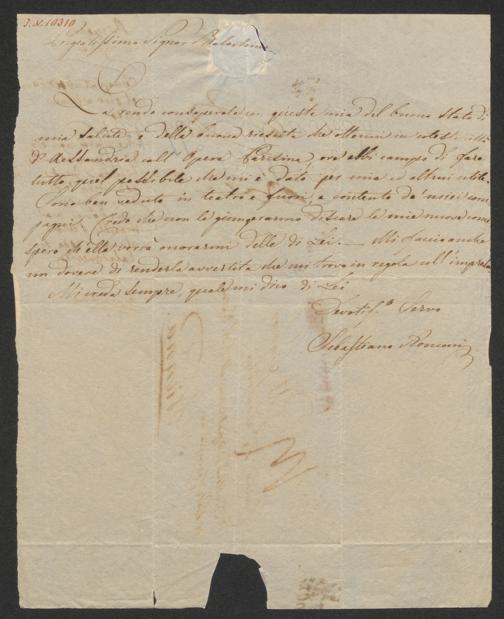 I.N. 10310
Pregiatissimo Signor Balochino
La rendo consapevole con questa mia del buono stato di
mia salute e della buona riescita che ottenni in cotesta città
d'Alessandria coll'Opera Parisina, ove ebbi campo di fare
tutto quel possibile che mi è dato per mia ed altrui utilità.
Sono ben veduto in teatro e fuori, e contento de' miei com
pagni. Credo che non le giungeranno discare le mie nuove come
spero ch'ella vorrà onorarmi delle di Lei. — Mi faccio anche
un dovere di renderla avvertita che mi trovo in regola coll'impresa
Mi creda sempre, quale mi dico di Lei
Devotis.o Servo
Sebastiano Ronconi